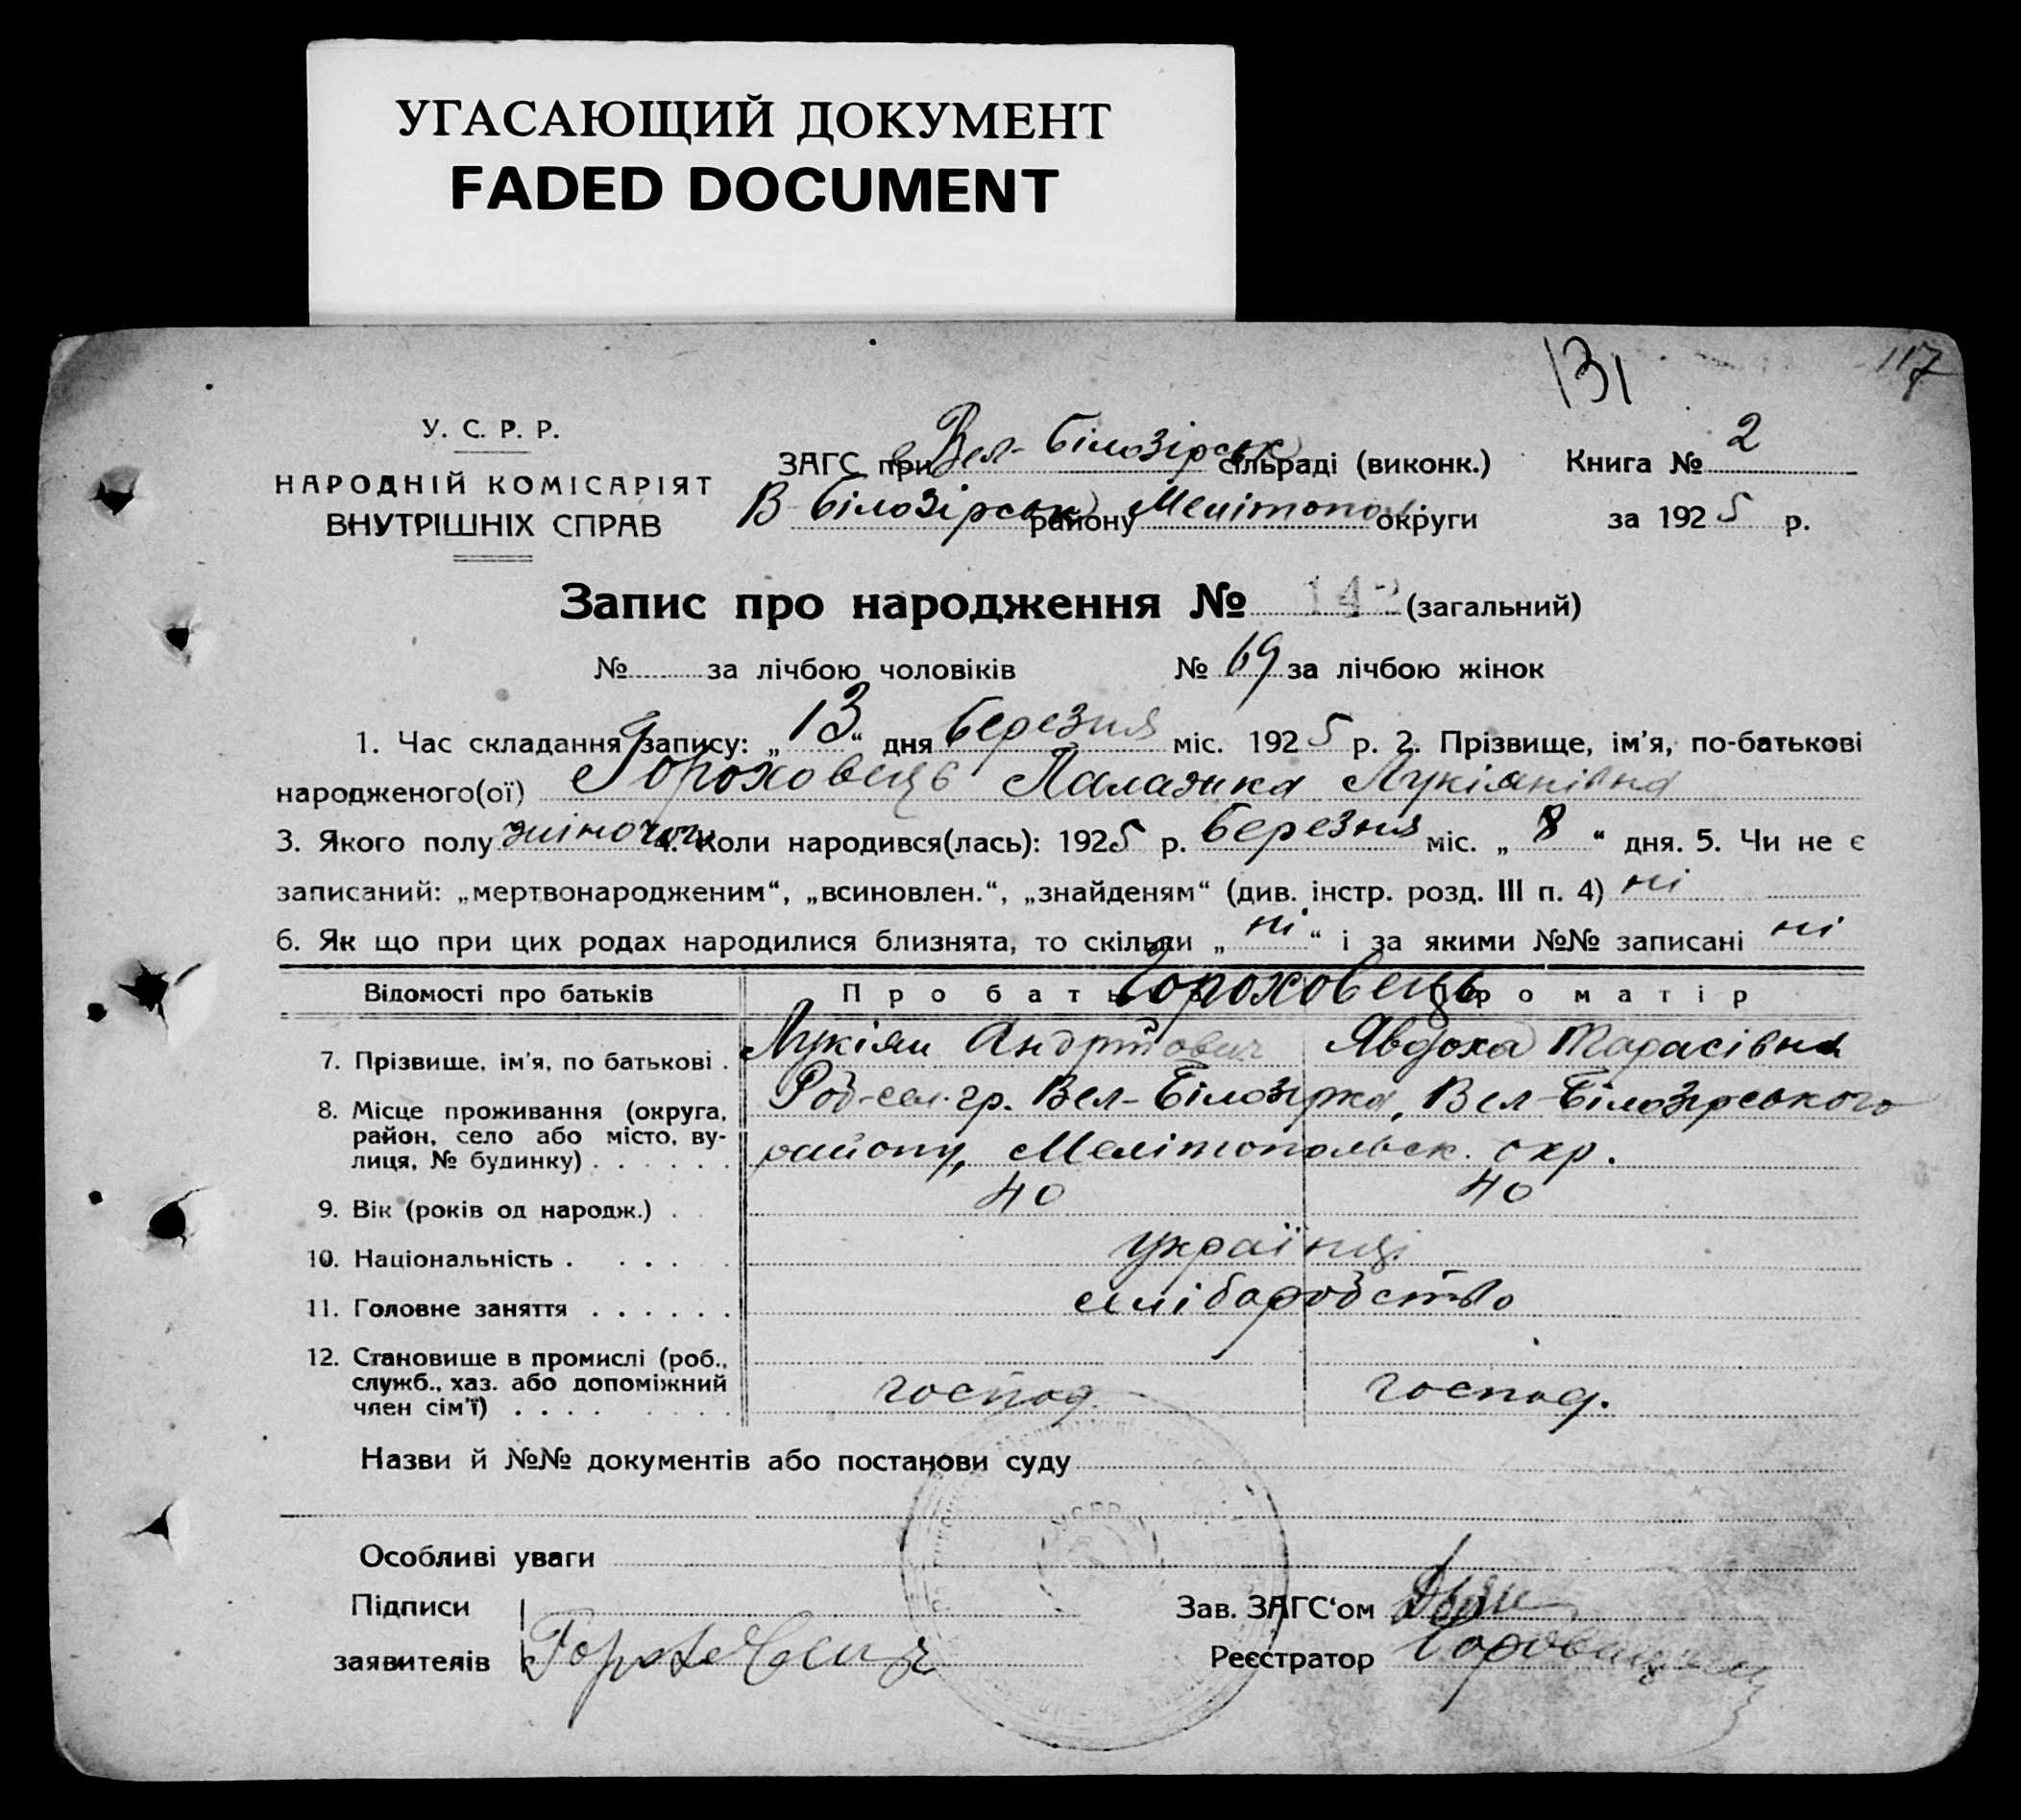 УГАСАЮЩИЙ ДОКУМЕНТ
FADED DOCUMENT
131
117
У. С. Р. Р.
НАРОДНІЙ КОМІСАРІЯТ
ВНУТРІШНІХ СПРАВ
ЗАГС при Вел-Білозірськ сільраді (виконк.)
В-Білозірськ району Мелітопол. округи
Книга № 2
за 1925 р.
Запис про народження № 142 (загальний)
№ за лічбою чоловіків № 69 за лічбою жінок
1. Час складання запису: „13“ дня березня міс. 1925 р. 2. Прізвище, ім'я, по-батькові
народженого(ої) Гороховець Палазика Лукіянівна
3. Якого полу жіночого 4. Коли народився(лась): 1925 р. березня міс. „8“ дня. 5. Чи не є
записаний: „мертвонародженим“, „всиновлен.“, „знайденям“ (див. інстр. розд. III п. 4) ні
6. Як що при цих родах народилися близнята, то скільки „ні“ і за якими №№ записані ні
Відомості про батьків Про батька Про матір
Гороховець
7. Прізвище, ім'я, по батькові . Лукіян Андрійович Явдоха Тарасівна
8. Місце проживання (округа, район, село або місто, вулиця, № будинку) . . . . . . гр. Вел-Білозірка, Вел-Білозірського
району, Мелітопольск. окр.
9. Вік (років од народж.) . 40 40
10. Національність . . . . . українці
11. Головне заняття . . . . . . хліборобство
12. Становище в промислі (роб.,
служб., хаз. або допоміжний
член сім'ї) . . . . господ. господ.
Назви й №№ документів або постанови суду
Особливі уваги
Підписи
заявителів Гороховець
Зав. ЗАГС'ом
Реєстратор